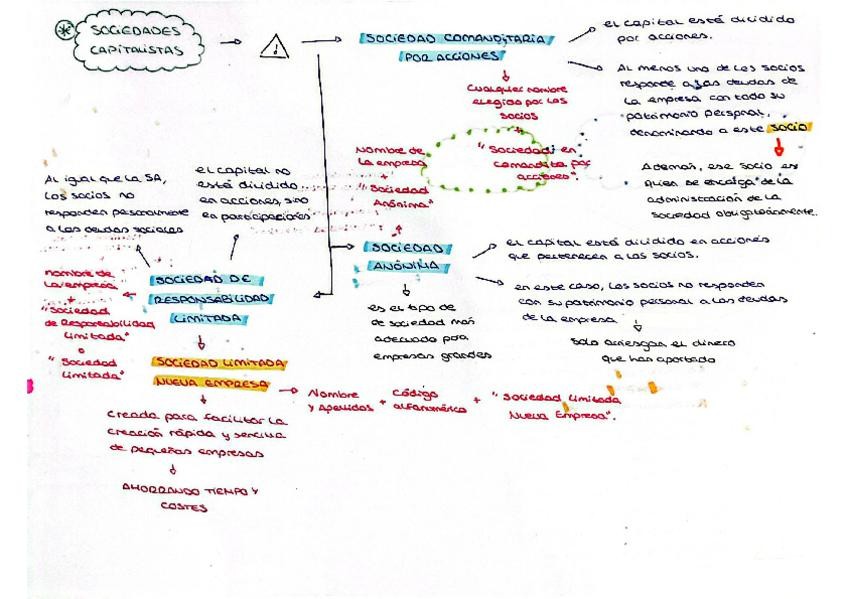 SOCIEDADES
CAPITALISTAS
SOCIEDAD COMANDITARIA
POR ACCIONES
el capital está dividido
por acciones.
Al menos uno de los socios
responde a las deudas de
la empresa con todo su
patrimonio personal,
denominando a este socio
Además, ese socio es
quien se encarga de la
administración de la
sociedad obligatoriamente.
Cualquier nombre
elegido por los
socios
+
"Sociedad en
comandita por
acciones".
Nombre de
la empresa
+
"Sociedad
Anónima"
SOCIEDAD
ANÓNIMA
el capital está dividido en acciones
que pertenecen a los socios.
en este caso, los socios no responden
con su patrimonio personal a las deudas
de la empresa
Solo arriesgan el dinero
que han aportado
es el tipo de
de sociedad más
adecuado para
empresas grandes
Al igual que la SA,
los socios no
responden personalmente
a las deudas sociales
el capital no
está dividido
en acciones, sino
en participaciones
SOCIEDAD DE
RESPONSABILIDAD
LIMITADA
nombre de
la empresa
+
"Sociedad
de Responsabilidad
Limitada"
o
"Sociedad
Limitada"
SOCIEDAD LIMITADA
NUEVA EMPRESA
Nombre
y Apellidos
+
Código
alfanumérico
+
"Sociedad Limitada
Nueva Empresa".
Creada para facilitar la
creación rápida y sencilla
de pequeñas empresas
AHORRANDO TIEMPO Y
COSTES